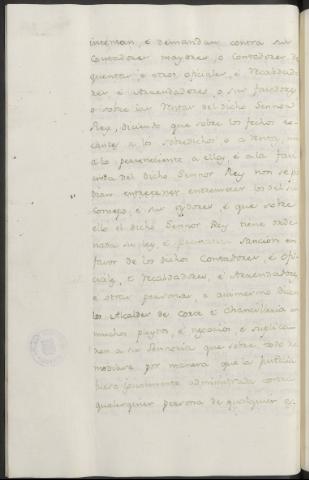 intentan, é demandan contra sus
Contadores mayores, o Contadores de
quentas é otros oficiales, é Recaudado
res é Arrendadores, o sus facedores
o sobre las Rentas del dicho Sennor
Rey, diciendo que sobre los fechos to
cantes a los sobredichos o a Rentas
a lo perteneciente a ellas, é a la faci
enda del dicho Sennor Rey non se po
dian entremeter los del su
Consejo, é sus oydores, é que sobre
ello el dicho Sennor Rey tiene orde
nada su ley, é premática sanción en
favor de los dichos Contadores, é ofi
ciales, é Recaudadores, é Arrendadores
é otras personas, é asimesmo dicen
los Alcaldes de Corte é Chancilleria en
muchos pleytos, é negocios é suplica
ron a su Sennoria que sobre todo re
mediase por manera que la Justicia
fuese igualmente administrada contra
qualesquier persona de qualquier es